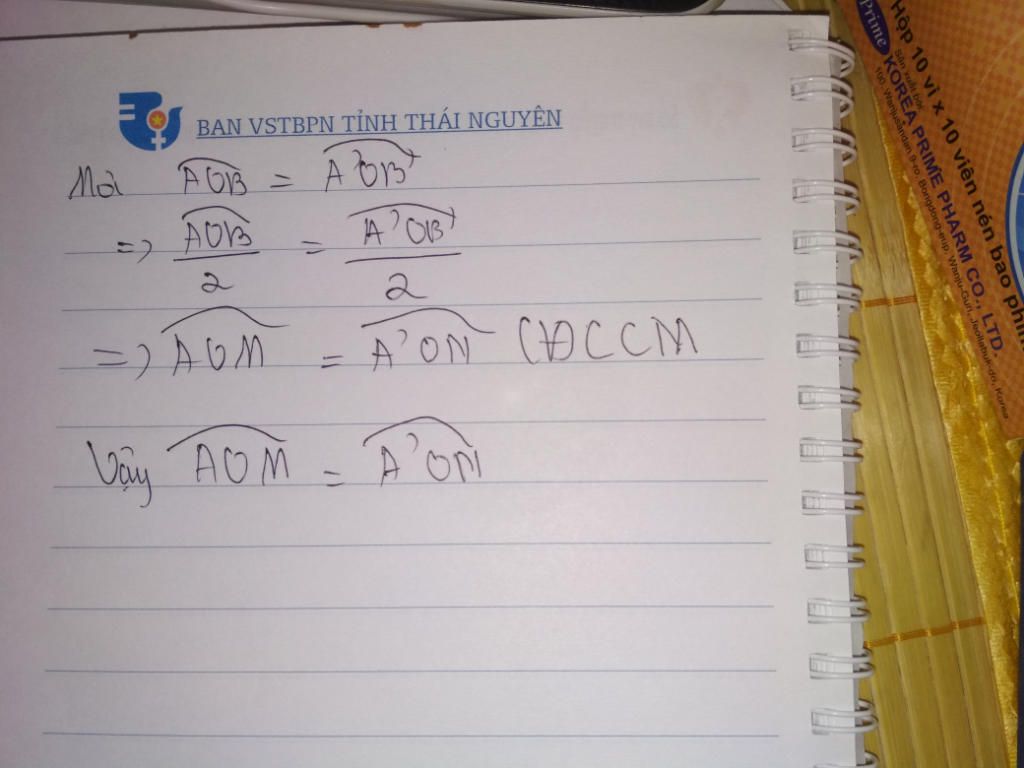 BAN VSTBPN TỈNH THÁI NGUYÊN
Mà AOB = A'OB'
=> AOB/2 = A'OB'/2
=> AOM = A'OM (ĐCCM
Vậy AOM = A'OM
Prime
Hộp 10 vỉ x 10 viên nén bao phim
Sản xuất bởi:
KOREA PRIME PHARM CO., LTD.